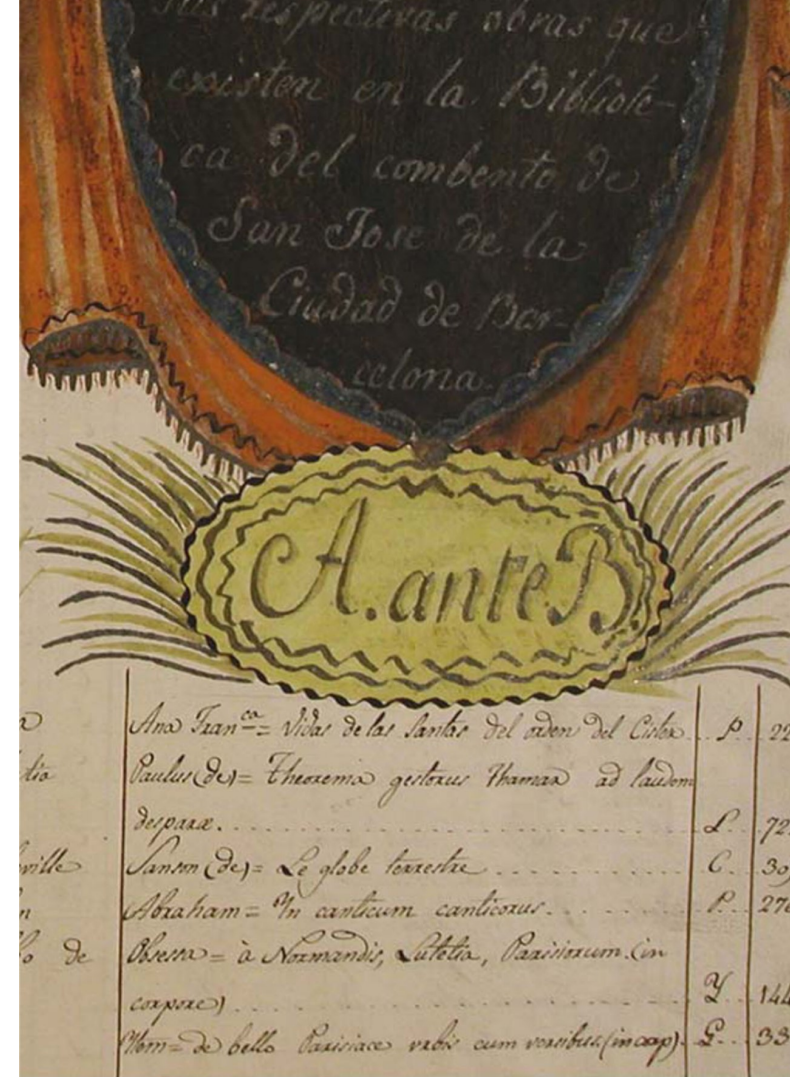 sus respectivas obras que
existen en la Bibliote-
ca del combento de
San Jose de la
Ciudad de Bar-
celona.
A. ante B.
Ana Fran.ca = Vidas de las Santas del orden del Cister P. 22
tia Paulus (de) = Theorema gestorus Thamar ad laudem
deiparæ. L. 72
ville Sanson (de) = Le globe terrestre C. 30
n Abraham = In canticum canticorus. P. 27
o de Obsessa = à Normandis, Lutetia, Parisiorum. (in
corpore) Y. 144
Item = de bello Parisiace urbis cum versibus. (in corp) G. 33